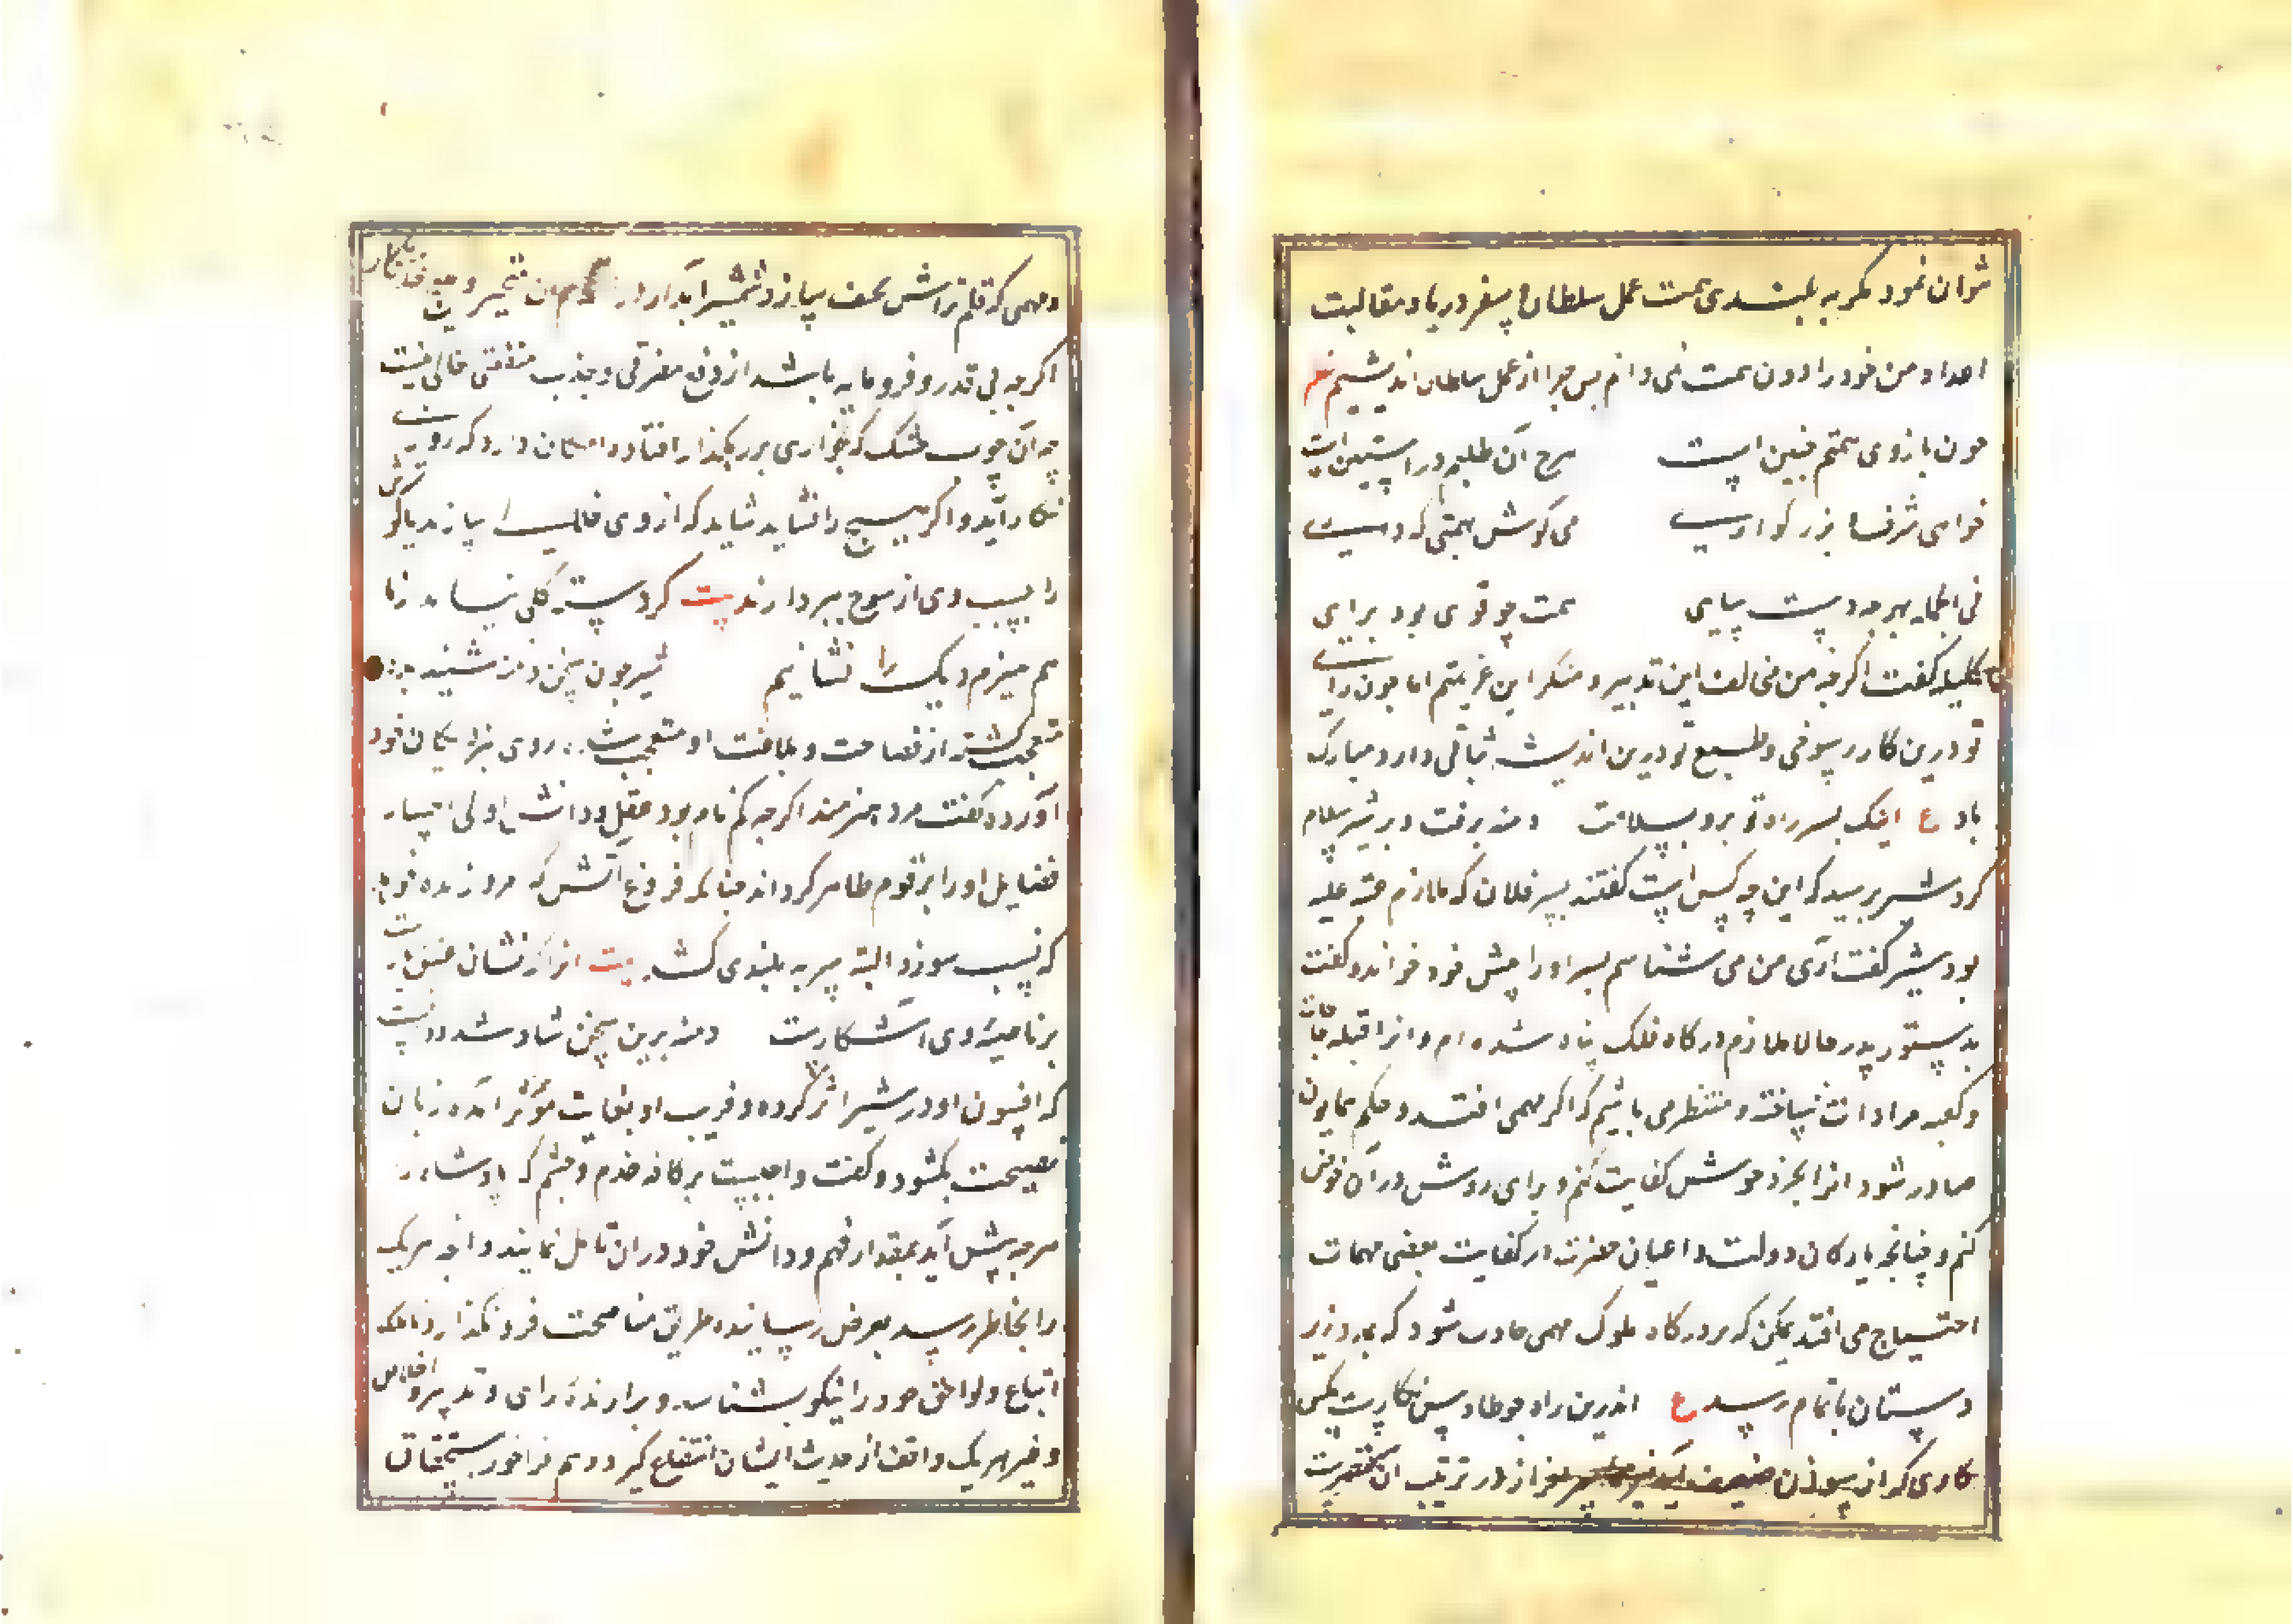 توان نمود مگر به بلندی همت عمل سلطان و سفر دریا و مقالبت
اعدا و من خود را دون همت نمی دانم پس چرا از عمل سلطان اندیشیم نظم
چون بازوی همتم چنین است هرچ آن طلبم در آستین است
خواهی شرف بزرگواریت می کوش بهمتی که داریت
همت چو قوی بود برآیی
کلیله گفت اگرچه من مخالف این تدبیر و منکر این عزیمتم اما چون رایت
تو درین کار رسوخی و طبع تو درین اندیشه ثباتی دارد مبارک
باد ع اینک سر راه تو برو بسلامت دمنه برفت و بر شیر سلام
کرد شیر پرسید که این چه کس است گفتند پسر فلان که ملازم عتبه علیه
بود شیر گفت آری من می شناسم پس او را پیش خود خواند و گفت
بدستور پدر حالا ملازم درگاه فلک پناه شده ام و آنرا قبله حاجات
و کعبه مرادات ساخته و منتظر می باشم که اگر مهمی افتد و حکم همایون
صادر شود آنرا بخرد خویش کفایت کنم و برای روشن در آن خوض
کنم و چنانچه بارکان دولت و اعیان حضرت در کفایت بعضی مهمات
احتیاج می افتد یمکن که بر درگاه ملوک مهمی حادث شود که بمدد زیر
دستان باتمام رسد ع اندرین راه چو طاوس بکارست مگس
کاری که از سوزن ضعیف آید نیزه سرفراز در ترتیب آن مقصرست
و مهمی که قلم تراش نحیف بسازد شمشیر آبدار در آن متحیرست و هیچ خدمتکار
اگرچه بی قدر و فرومایه باشد از دفع مضرتی و جذب منفعتی خالی نیست
چه آن چوب خشک که بخواری بر رهگذار افتاده امکان دارد که روزی
بکار آید و اگر هیچ را نشاید شاید که از وی خلالی سازند یا گوش
را بسبب وی از وسخ بپردازند بیت گر دسته گلی نیاید از ما
هم هیزم دیگ را نشاییم شیر چون سخن دمنه شنید
متعجب گشته از فصاحت و بلاغت او متعجب شد روی بنزدیکان خود
آورده گفت مرد هنرمند اگرچه گم نام بود عقل و دانش او بی اختیار
فضایل او را بر قوم ظاهر گرداند چنانکه فروغ آتش که فروزنده خواهد
که پست سوزد البته سر به بلندی کشد بیت آنرا که نشان عشق یارست
بر ناصیه وی آشکارست دمنه برین سخن شاد شد و دانست
که افسون او در شیر اثر کرده و فریب او بغایت مؤثر آمده زبان
نصیحت بگشود و گفت واجبست بر کافه خدم و حشم که پادشاه را
هرچه پیش آید بمقدار فهم و دانش خود در آن تامل نمایند و آنچه هر یک
را بخاطر رسد بعرض رسانیده طریق مناصحت فرو نگذارند تا ملک
اتباع و لواحق خود را نیکو بشناسد و بر اندازه رای و تدبیر و اخلاص
و خیر هر یک واقف از حدیث ایشان انتفاع گیرد و هم فراخور استحقاق